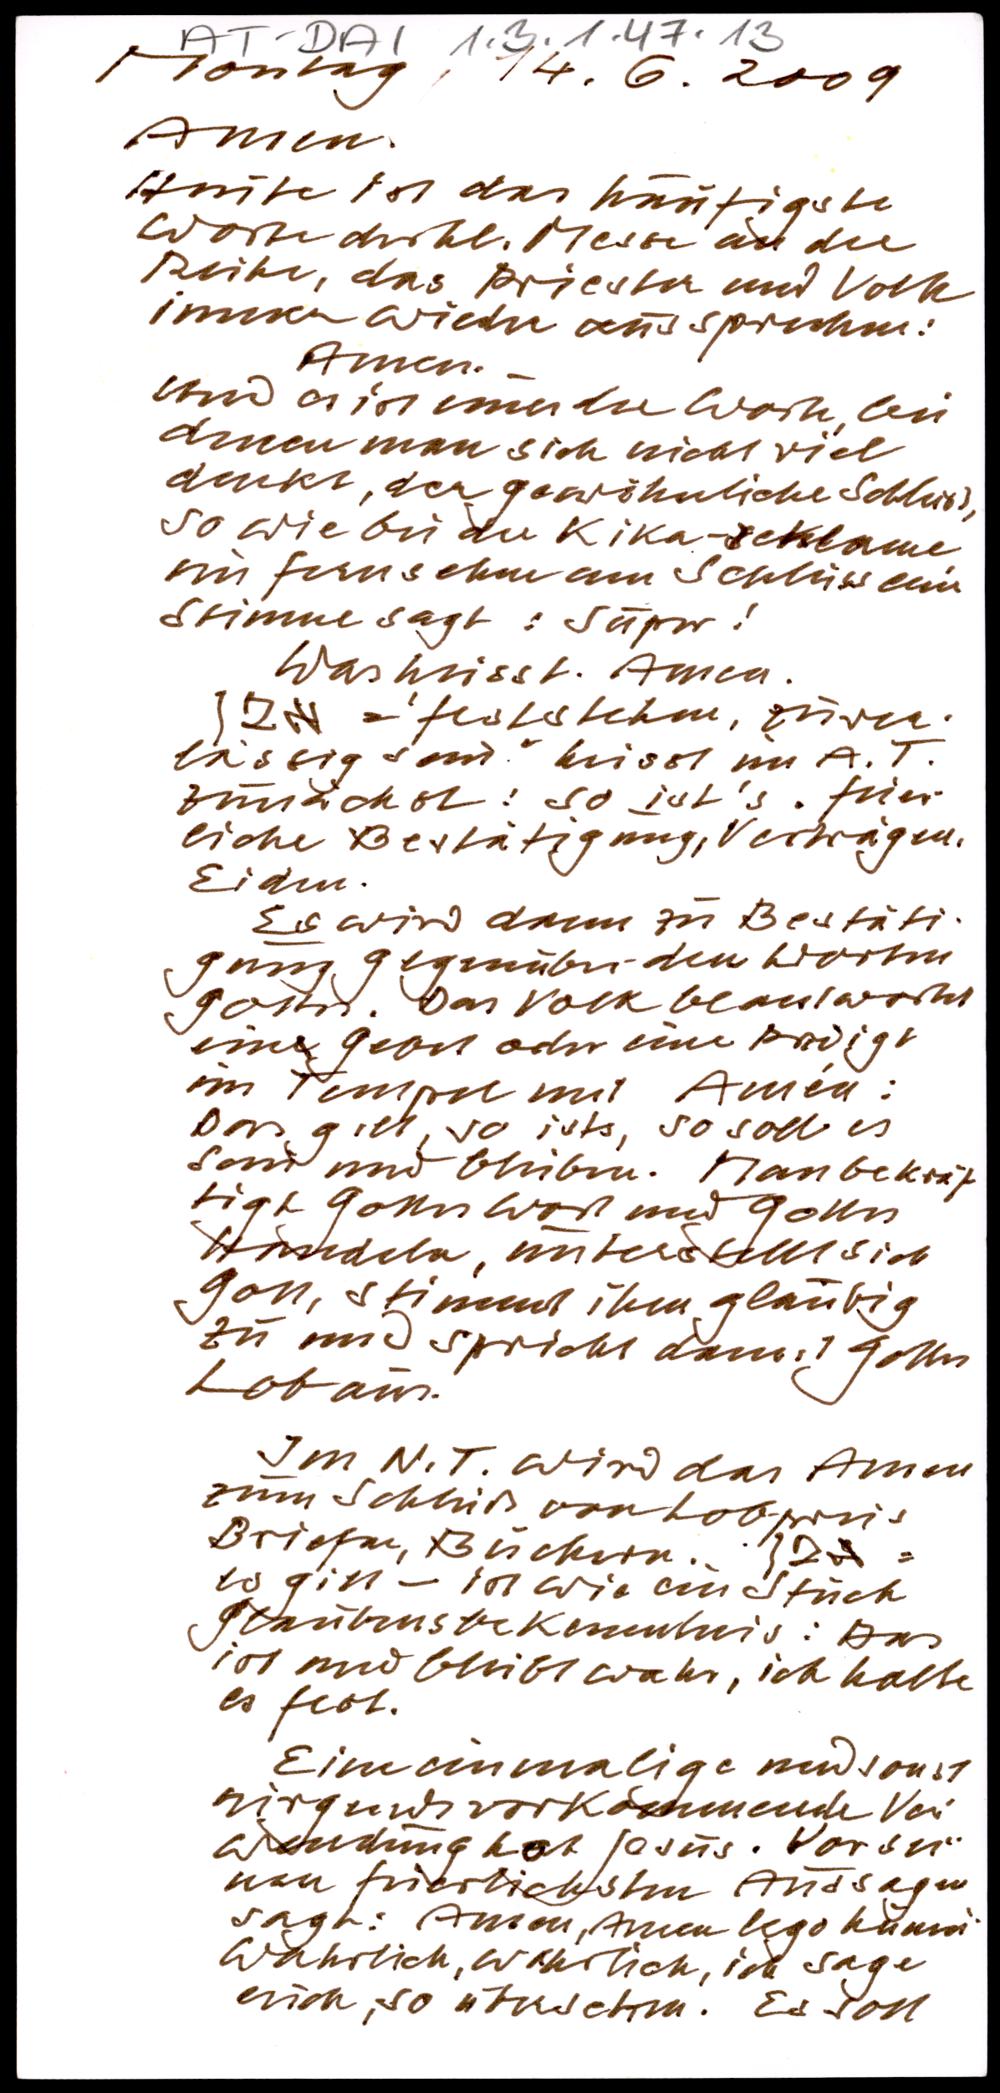 AT-DAI 1.3.1.47.13
Montag, 14. 6. 2009
Amen.
Heute ist das häufigste
Wort der hl. Messe an der
Reihe, das Priester und Volk
immer wieder aussprechen:
Amen.
Und es ist eines der Worte, bei
denen man sich nicht viel
denkt, der gewöhnliche Schluss,
so wie bei der Kika-Reklame
im Fernsehen am Schluss eine
Stimme sagt: Super!
Was heisst. Amen.
אמן = "feststehen, zuver-
lässig sein" heisst im A.T.
zunächst: so ist's. feier-
liche Bestätigung, Verträgen,
Eiden.
Es wird dann zu Bestäti-
gung gegenüber den Worten
Gottes. Das Volk beantwortet
eine Gebet oder eine Predigt
im Tempel mit Amen:
Das gilt, so ists, so soll es
sein und bleiben. Man bekräf
tigt Gottes Wort und Gottes
Handeln, unterstellt sich
Gott, stimmt ihm gläubig
zu und spricht damit Gottes
Lob aus.
Im N.T. wird das Amen
zum Schluß von Lobpreis
Briefen, Büchern. אמן =
es gilt - ist wie ein Stück
Glaubensbekenntnis: Das
ist und bleibt wahr, ich halte
es fest.
Eine einmalige und sonst
nirgends vorkommende Ver
wendung hat Jesus. Vor sei-
nen feierlichsten Aussagen
sagt: Amen, Amen lego hümin
Wahrlich, wahrlich, ich sage
euch, so übersetzen. Es soll